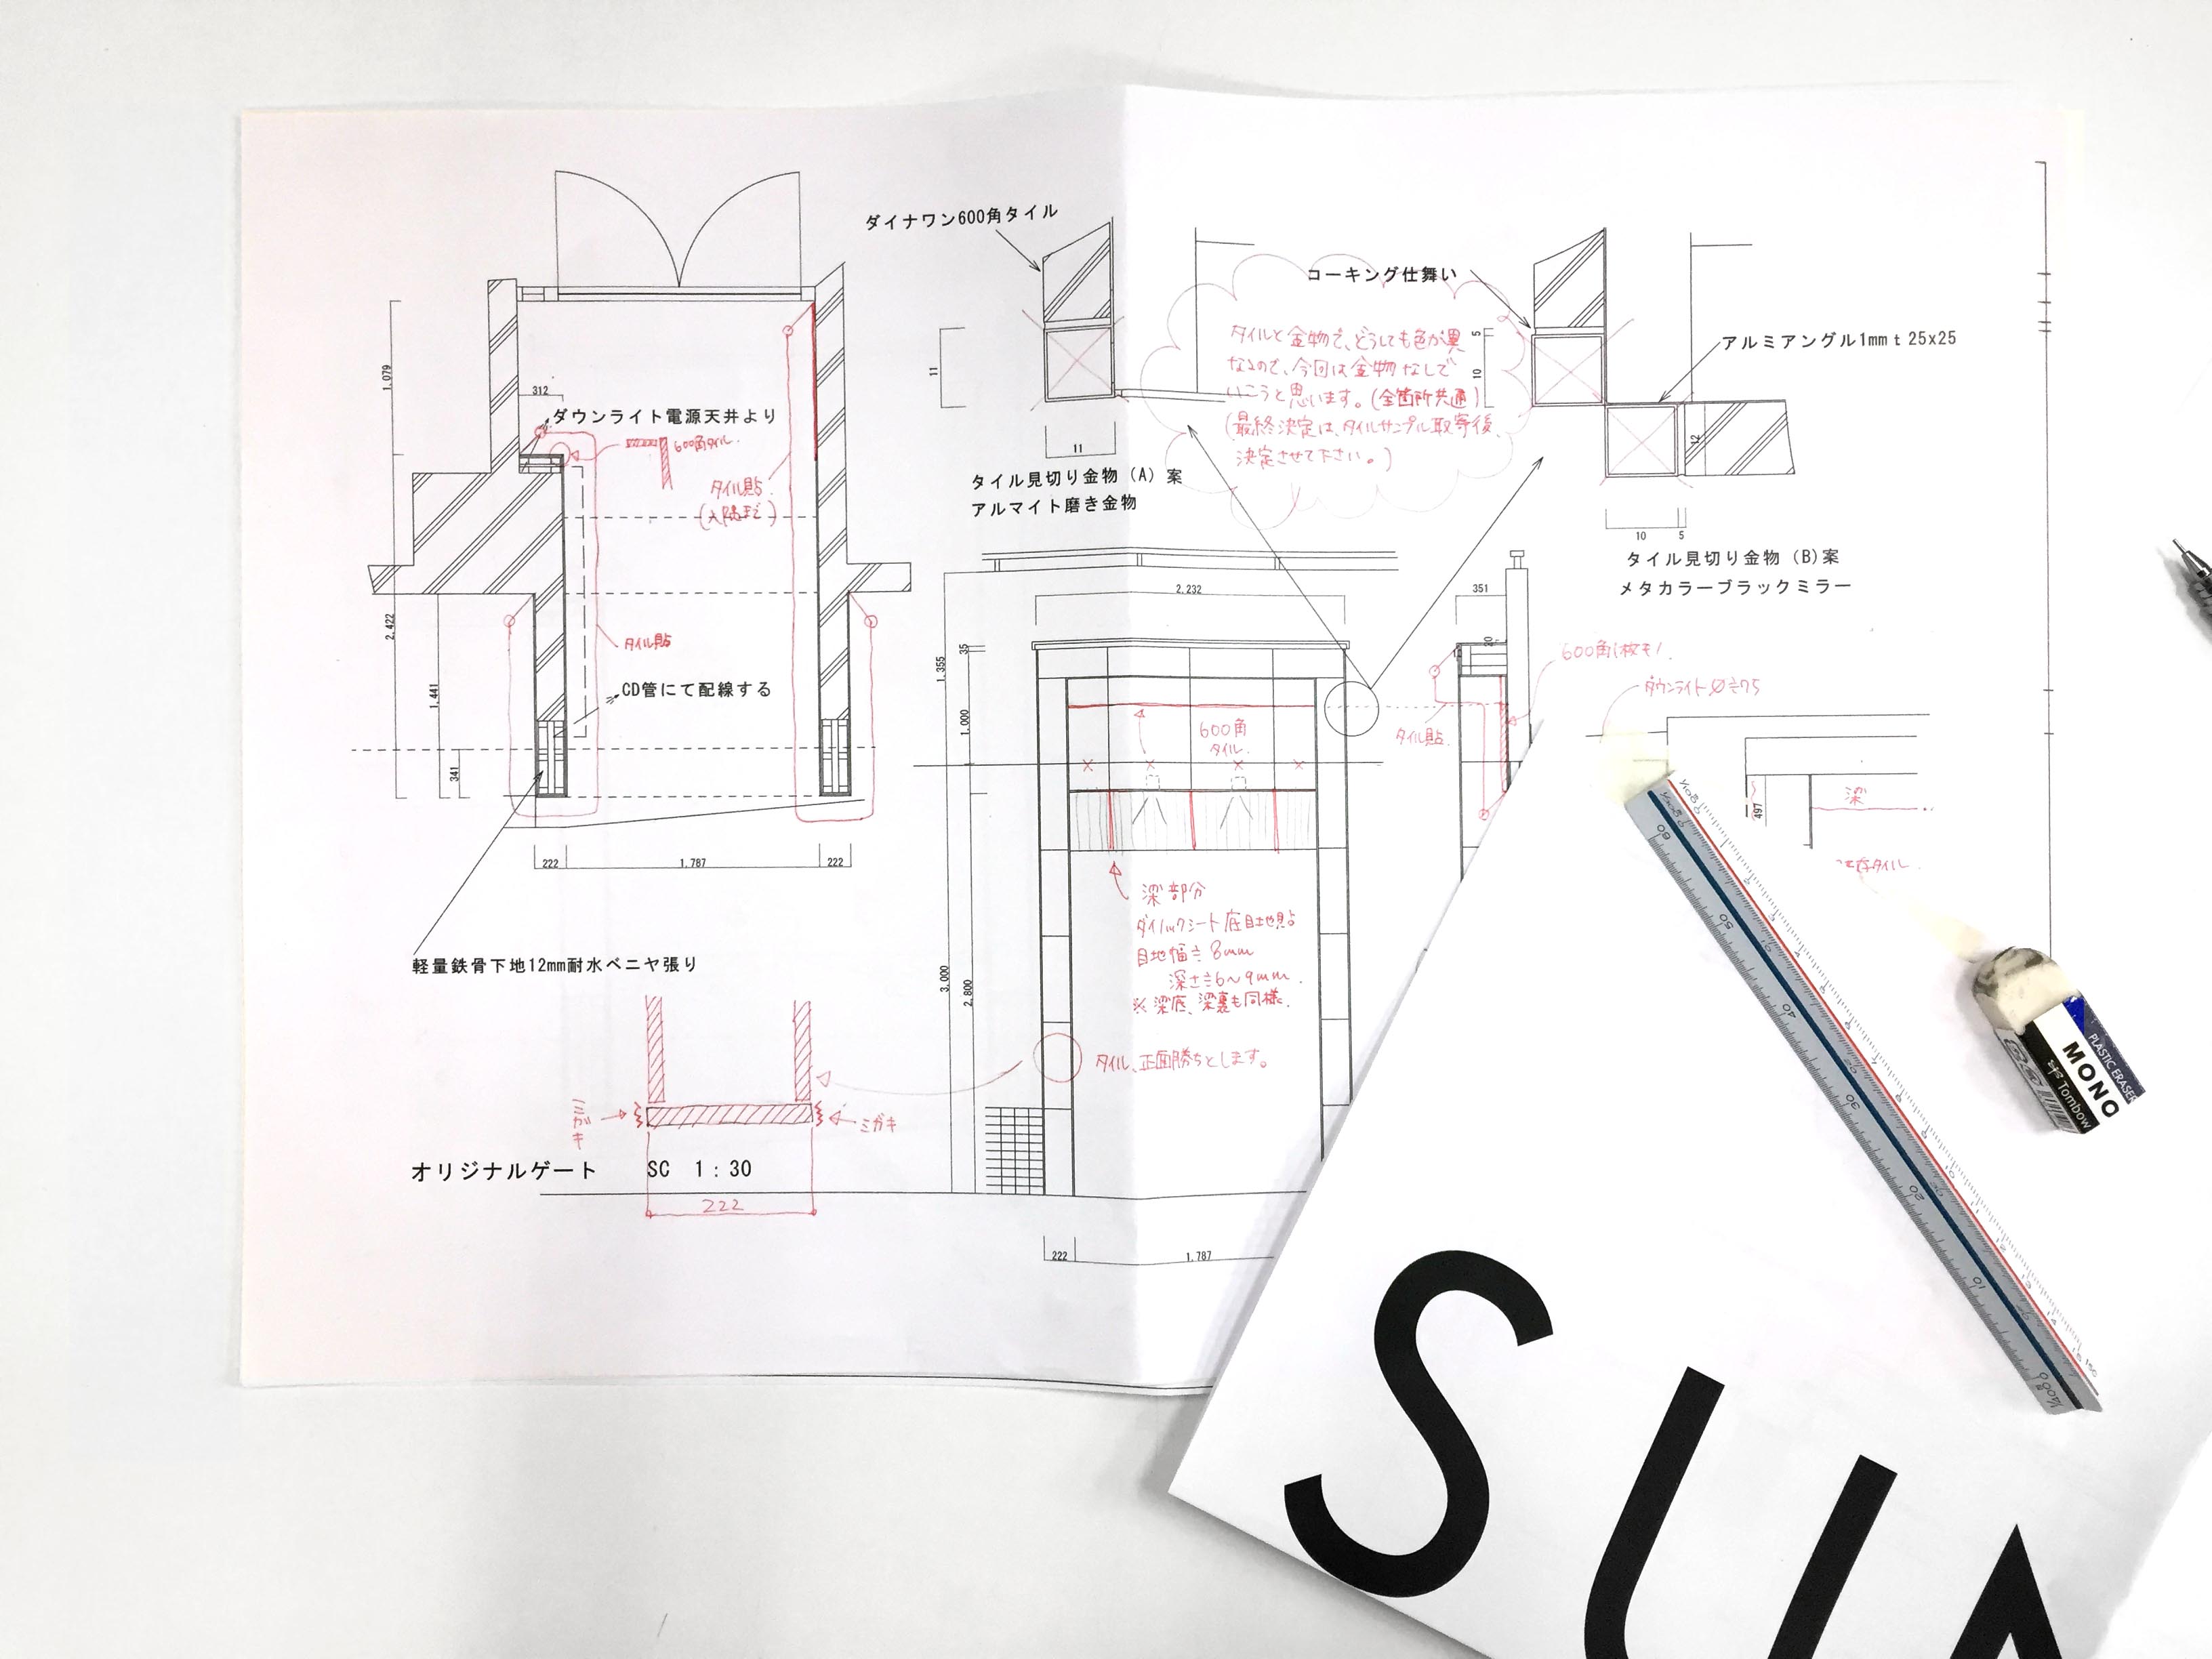 ダイナワン600角タイル
コーキング仕舞い
アルミアングル1mm t 25x25
1,079
312
ダウンライト電源天井より
600角タイル.
タイル貼.
(入隅まで)
11
11
タイル見切り金物 (A) 案
アルマイト磨き金物
タイルと金物で、どうしても色が異
なるので、今回は金物なしで
いこうと思います。(全箇所共通)
(最終決定は、タイルサンプル取寄後、
決定させて下さい。)
5
10
12
10
5
タイル見切り金物 (B) 案
メタカラーブラックミラー
2,422
1,441
341
タイル貼
CD管にて配線する
222
1,787
222
軽量鉄骨下地12mm耐水ベニヤ張り
2.232
351
35
1,355
1,000
3,000
2,800
20
600角
タイル.
タイル貼.
600角1枚モノ.
ダウンライトØ≒75
497
梁
梁部分
ダイノックシート底目地貼
目地幅≒8mm
深さ≒6〜9mm.
※梁底、梁裏も同様.
タイル、正面勝ちとします。
ミガキ
ミガキ
オリジナルゲート SC 1:30
222
222
1,787
PLASTIC ERASER
MONO
Tombow
60
50
40
30
20
10
0